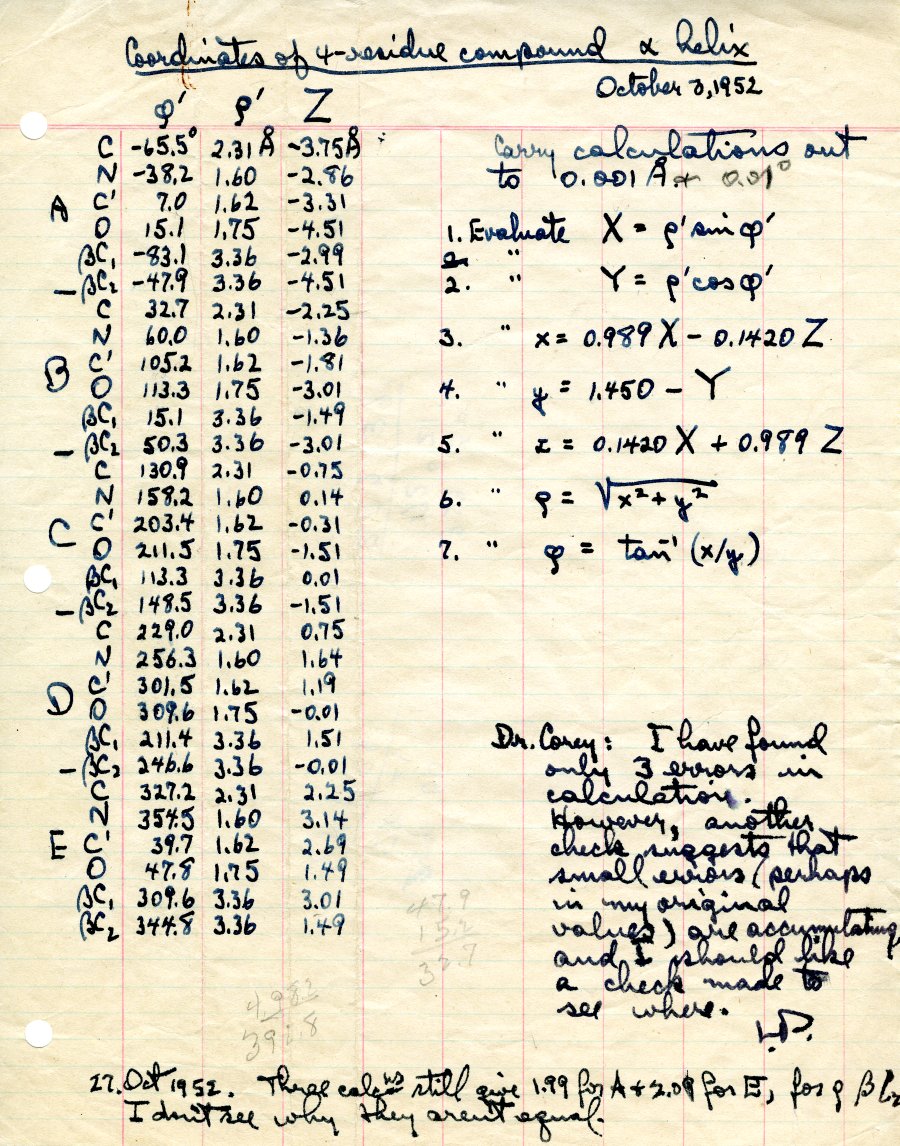 Coordinates of 4-residue compound α helix
October 3, 1952
φ' ρ' Z
C -65.5° 2.31 Å -3.75 Å
N -38.2 1.60 -2.86
A C' 7.0 1.62 -3.31
O 15.1 1.75 -4.51
βC₁ -83.1 3.36 -2.99
βC₂ -47.9 3.36 -4.51
C 32.7 2.31 -2.25
N 60.0 1.60 -1.36
B C' 105.2 1.62 -1.81
O 113.3 1.75 -3.01
βC₁ 15.1 3.36 -1.49
βC₂ 50.3 3.36 -3.01
C 130.9 2.31 -0.75
N 158.2 1.60 0.14
C C' 203.4 1.62 -0.31
O 211.5 1.75 -1.51
βC₁ 113.3 3.36 0.01
βC₂ 148.5 3.36 -1.51
C 229.0 2.31 0.75
N 256.3 1.60 1.64
D C' 301.5 1.62 1.19
O 309.6 1.75 -0.01
βC₁ 211.4 3.36 1.51
βC₂ 246.6 3.36 -0.01
C 327.2 2.31 2.25
N 354.5 1.60 3.14
E C' 39.7 1.62 2.69
O 47.8 1.75 1.49
βC₁ 309.6 3.36 3.01
βC₂ 344.8 3.36 1.49
Carry calculations out
to 0.001 Å + 0.01°
1. Evaluate X = ρ' sin φ'
2. " Y = ρ' cos φ'
3. " x = 0.989 X - 0.1420 Z
4. " y = 1.450 - Y
5. " z = 0.1420 X + 0.989 Z
6. " ρ = √x² + y²
7. " φ = tan⁻¹ (x/y)
Dr. Corey: I have found
only 3 errors in
calculation.
However, another
check suggests that
small errors (perhaps
in my original
values) are accumulating
and I should like
a check made to
see where.
L.P.
47.9
15.2
32.7
398.8
27. Oct 1952. Three calcns still give 1.99 for A + 2.09 for E, for ρ βC₂
I don't see why they aren't equal.